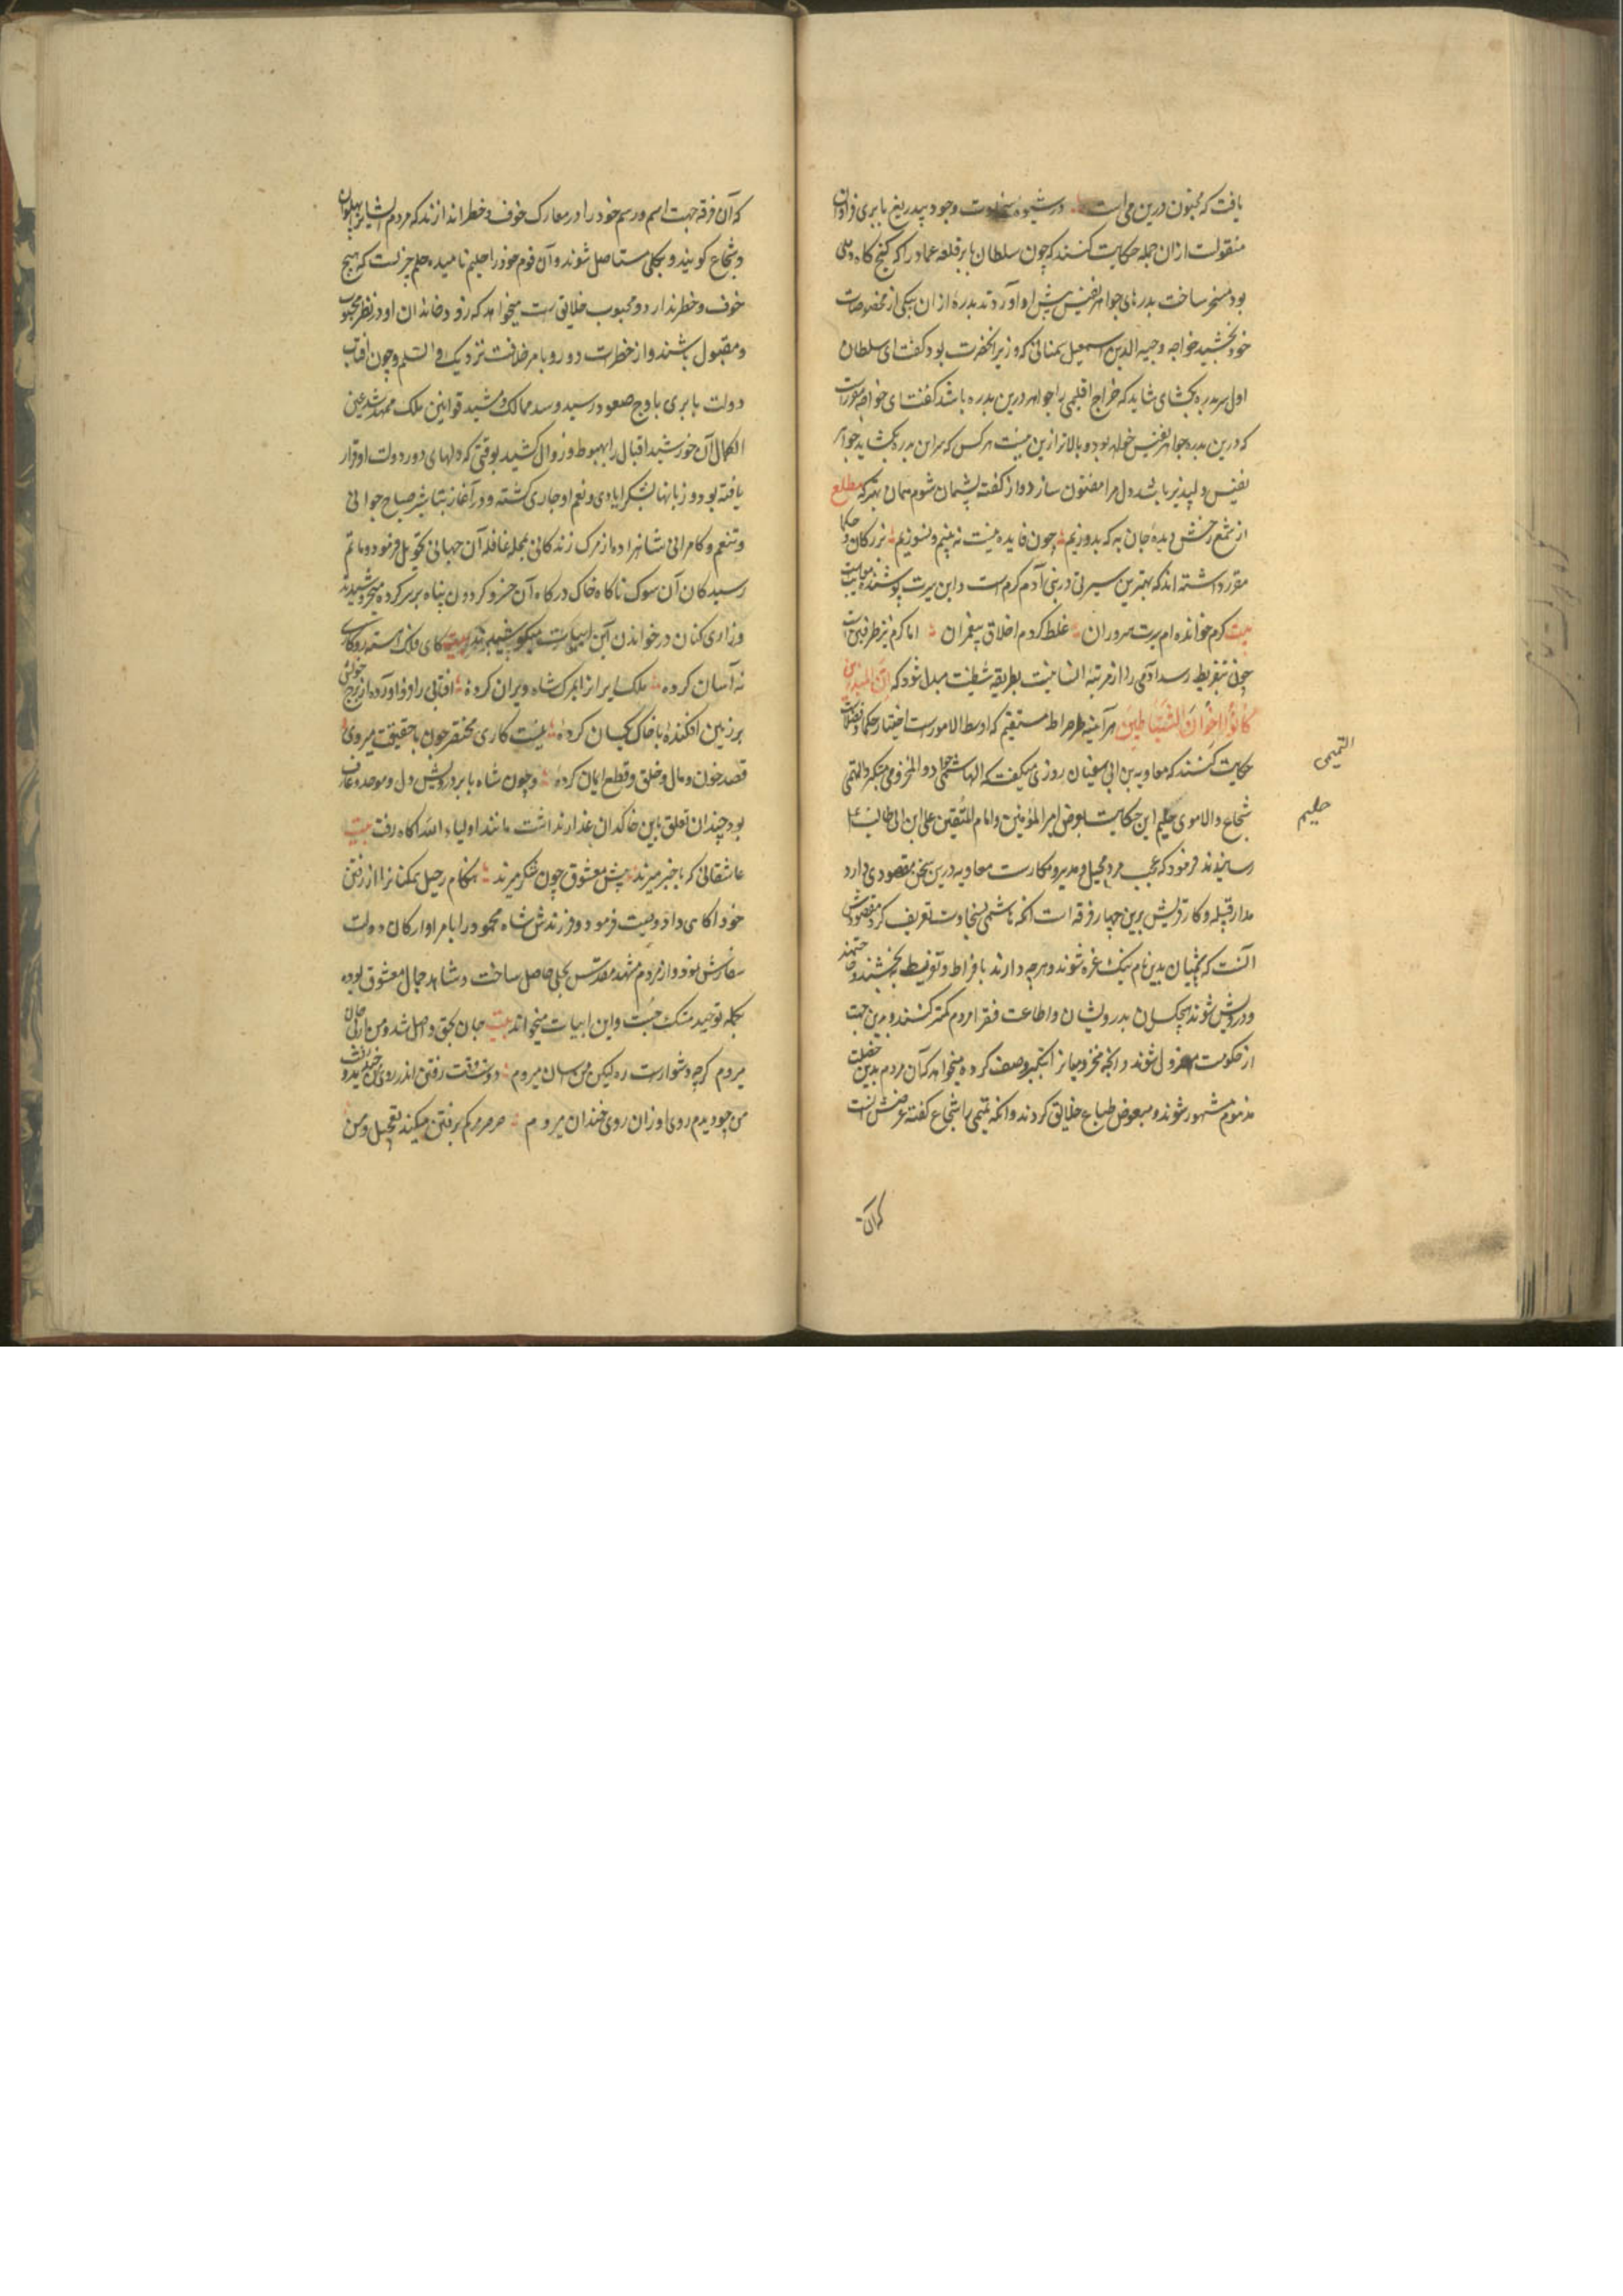 یافت که مجنون درین می است در شیوهٔ سخاوت وجود پیدریغ بابری فراوان
منقولست ازان جمله حکایت کنند که چون سلطان بابر قلعه عماد را که کنج کاه
بود مسخر ساخت بدرهای جواهر نفیس پیش او آوردند بدرهٔ ازان بیکی از مخصوصان
خود بخشید خواجه وجیه الدین اسمعیل سمنانی که وزیر آنحضرت بود گفت ای سلطان
اول سر بدره بکشای شاید که خراج اقلیمی را جواهر درین بدره باشد گفت ای خواجه مقررست
که درین بدره جواهر نفیس خواهد بود و بالاتر ازین نیست هر کس که سر این بدره بکشاید جواهر
نفیس دلپذیر باشد و دل مرا مفتون سازد و از گفته پشیمان شوم همان بهتر که مطلع
از شمع رخش دیدهٔ جان به که بدوزیم چون فایده نیست نه بینیم و نسوزیم بزرکان و حکما
مقرر داشته اند که بهترین سیرتی در بنی آدم کرم است و این سیرت پوشنده معایب است
بیت کرم خوانده ام سیرت سروران غلط کردم اخلاق پیغمبران اما کرم نیز طرفین است
چون بتفریط رسد آدمی را از مرتبه انسانیت بطریقه شیطنت مبدل شود که اِنَّ المبذرین
کانُوا اِخوانَ الشَّیَاطینِ هر آینه صراط مستقیم که اوسط الامورست اختیار حکما و فضلاست
حکایت کنند که معاویه بن ابی سفیان روزی میگفت که الهاشمی جواد و المخزومی متکبر و التیمی
شجاع و الاموی حلیم این حکایت بعرض امیر المؤمنین و امام المتقین علی ابن ابی طالب
رسانیدند فرمود که عجب مرد محیل و مدبر و مکارست معاویه درین سخن مقصودی دارد
مدار قبیله و کار قریش برین چهار فرقه است آنکه هاشمی بسخاوت تعریف کرد مقصودش
آنست که هاشمیان بدین نام نیک غره شوند و هرچه دارند بافراط و تفریط بخشند و حاجتمند
و درویش شوند هیچکسان بدرویشان و اطاعت فقرا مردم کمتر کنند و بدین جهت
از حکومت معزول شوند و آنچه مخزومیانرا بتکبر وصف کرده میخواهد که آن مردم بدین خصلت
مذموم مشهور شوند و مبغوض طباع خلایق کردند و آنکه تیمی را شجاع گفته غرضش آنست
التیمی
حلیم
که آن
که آن فرقه جهت اسم و رسم خود را در معارک خوف و خطر اندازند که مردم ایشانرا پهلوان
و شجاع گویند و بکلی مستاصل شوند و آن قوم خود را حلیم نامیده حلم چیزیست که هیچ
خوف و خطر ندارد و محبوب خلایق است میخواهد که رود خاندان او در نظر محبوب
و مقبول باشند و از خطرات دور و بامر خلافت نزدیک والسلم و چون افتاب
دولت بابری باوج صعود رسید و سد ممالک مشید قوانین ملک ممهد شد عین
الکمال آن خورشید اقبال را بهبوط و زوال کشید بوقتی که دلهای دور دولت او قرار
یافته بود و زبانها بشکر ایادی و نعم او جاری گشته و در آغاز تباشیر صباح جوانی
و تنعم و کامرانی شاهزاده از مرکب زندگانی بمحله غافله آن جهانی تحویل فرمود و ماتم
رسیدکان آن سوک ناگاه خاک درکاه آن خسرو کردون پناه بر سر کرده میخروشیدند
و زاری کنان در خواندن این ابیات میکوشیدند بیت کای فلک آهسته رو کاری
نه آسان کردهٔ ملک ایران را بمرک شاه ویران کردهٔ افتابی را فرود آورده از برج خویش
بر زمین افکندهٔ با خاک یکسان کردهٔ نیست کاری مختصر چون با حقیقت میروی
قصد خون و مال و خلق و قطع ایمان کردهٔ و چون شاه بابر درویش دل و موحد و عارف
بود چندان تعلق باین خاکدان غدار نداشت مانند اولیاء الله آگاه رفت بیت
عاشقانی که با خبر میرند پیش معشوق چون شکر میرند هنکام رحیل ممکنانرا از رفتن
خود آکاهی داد و وصیت فرمود و فرزندش شاه محمود را بامرا و ارکان دولت
سفارش نمود و از مردم مشهد مقدس بحلی حاصل ساخت و مشاهد جمال معشوق بوده
بکلمه توحید متمسک جست و این ابیات میخواند بیت جان بحق واصل شد و من از پی جان
میروم کرچه دشوارست ره لیکن من آسان میروم دوش وقت رفتن اندر روی من خندید دوست
من چو دیدم روی او زان روی خندان میروم صرصر مرکم برفتن میکند تعجیل و من